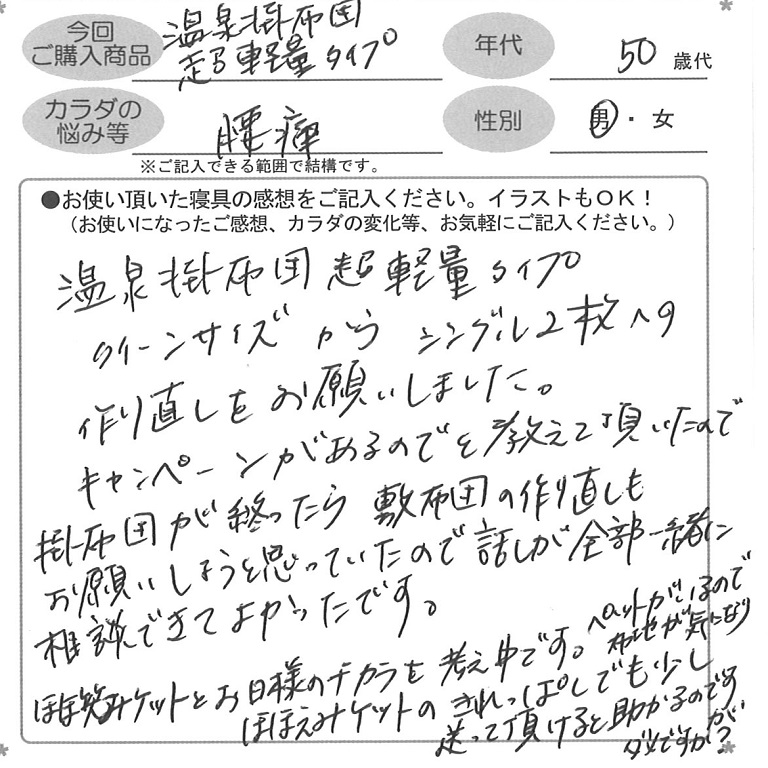 今回
ご購入商品
温泉掛布団
超軽量タイプ
年代
50歳代
カラダの
悩み等
腰痛
性別
男・女
※ご記入できる範囲で結構です。
●お使い頂いた寝具の感想をご記入ください。イラストもOK！
（お使いになったご感想、カラダの変化等、お気軽にご記入ください。）
温泉掛布団 超軽量タイプ
クイーンサイズから シングル2枚への
作り直しをお願いしました。
キャンペーンがあるのでと教えて頂いたので
掛布団が終ったら 敷布団の作り直しも
お願いしようと思っていたので話しが全部一緒に
相談できてよかったです。
ほほ笑みケットとお日様のチカラを考え中です。
ペットがいるので
布地が気になり
ほほえみケットのきれっぱしでも少し
送って頂けると助かるのです
が
ダメですか？